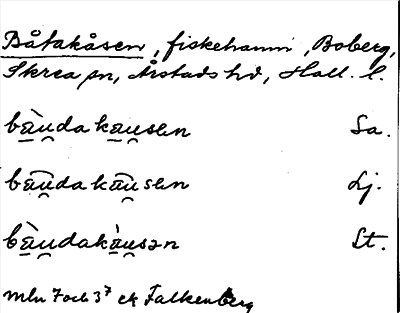 Båtakåsen, fiskehamn, Boberg,
Skrea sn, Årstads hd, Hall. l.
bàu̯dakau̯sən Sa.
bāu̯dakāu̯sən Lj.
bàu̯dakàu̯sən St.
mln 7 och 37 ek Falkenberg